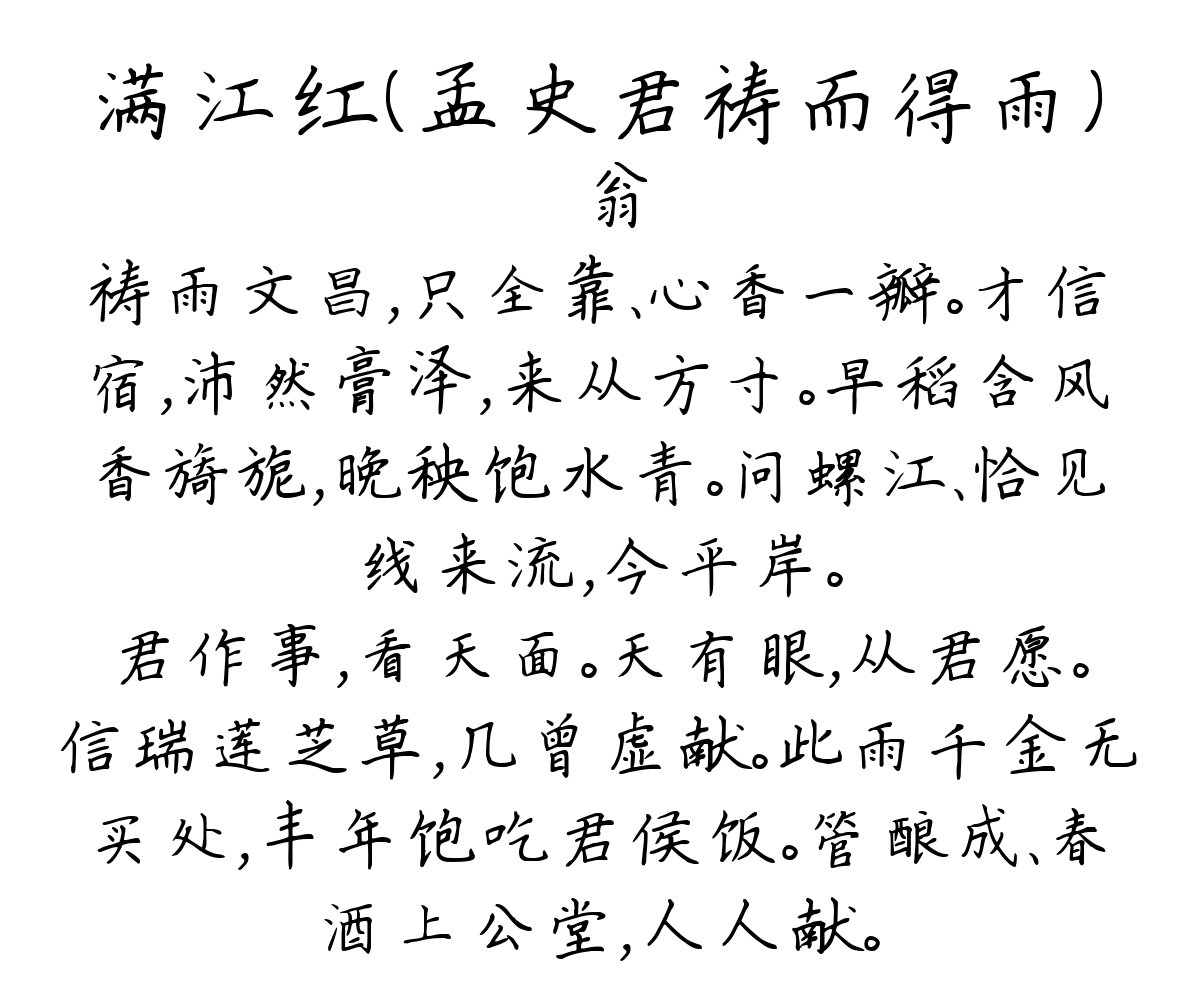 满江红(孟史君祷而得雨)
翁
祷雨文昌,只全靠、心香一瓣。才信
宿,沛然膏泽,来从方寸。早稻含风
香旖旎,晚秧饱水青。问螺江、恰见
线来流,今平岸。
君作事,看天面。天有眼,从君愿。
信瑞莲芝草,几曾虚献。此雨千金无
买处,丰年饱吃君侯饭。管酿成、春
酒上公堂,人人献。